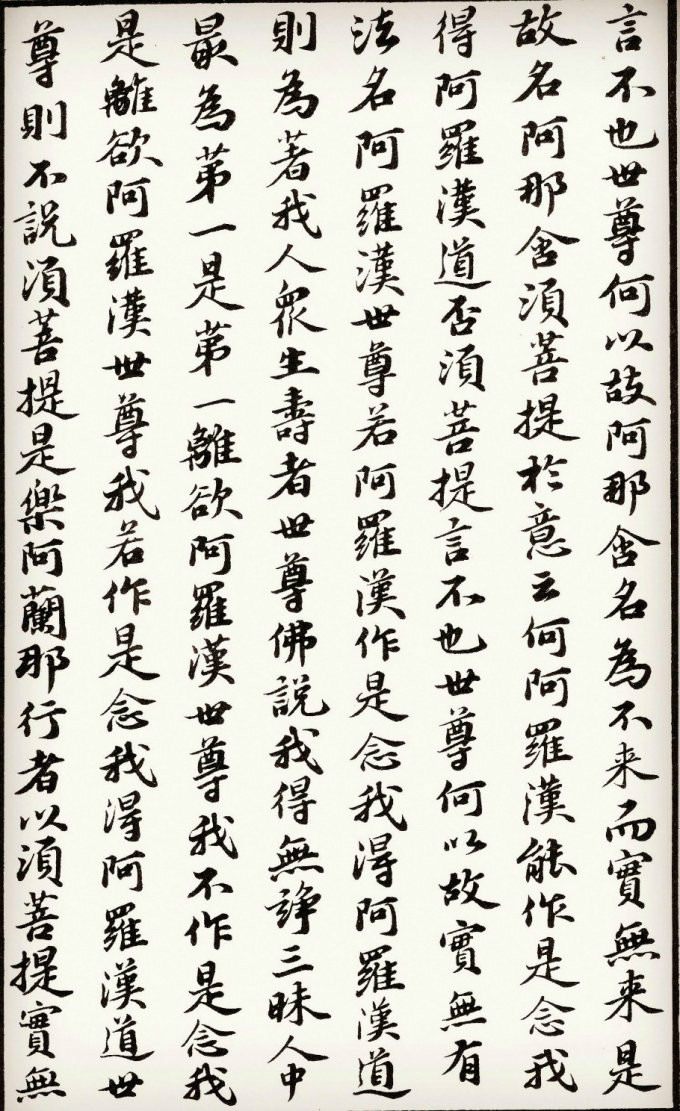 言不也世尊何以故阿那含名為不来而實無来是
故名阿那含須菩提於意云何阿羅漢能作是念我
得阿羅漢道否須菩提言不也世尊何以故實無有
法名阿羅漢世尊若阿羅漢作是念我得阿羅漢道
則為著我人眾生壽者世尊佛說我得無諍三昧人中
最為第一是第一離欲阿羅漢世尊我不作是念我
是離欲阿羅漢世尊我若作是念我得阿羅漢道世
尊則不說須菩提是樂阿蘭那行者以須菩提實無